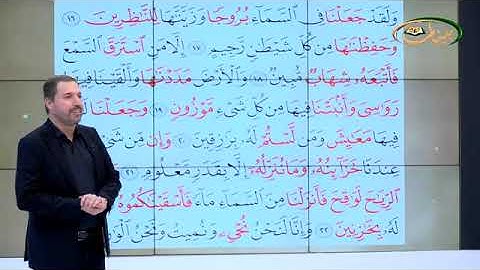 وَلَقَدْ جَعَلْنَا فِي السَّمَاءِ بُرُوجًا وَزَيَّنَّاهَا لِلنَّاظِرِينَ ١٦
وَحَفِظْنَاهَا مِن كُلِّ شَيْطَانٍ رَّجِيمٍ ١٧ إِلَّا مَنِ اسْتَرَقَ السَّمْعَ
فَأَتْبَعَهُ شِهَابٌ مُّبِينٌ ١٨ وَالْأَرْضَ مَدَدْنَاهَا وَأَلْقَيْنَا فِيهَا
رَوَاسِيَ وَأَنبَتْنَا فِيهَا مِن كُلِّ شَيْءٍ مَّوْزُونٍ ١٩ وَجَعَلْنَا
فِيهَا مَعَايِشَ وَمَن لَّسْتُمْ لَهُ بِرَازِقِينَ ٢٠ وَإِن مِّن شَيْءٍ
عِندَنَا خَزَائِنُهُ وَمَا نُنَزِّلُهُ إِلَّا بِقَدَرٍ مَّعْلُومٍ ٢١
الرِّيَاحَ لَوَاقِحَ فَأَنزَلْنَا مِنَ السَّمَاءِ مَاءً فَأَسْقَيْنَاكُمُوهُ
لَهُ بِخَازِنِينَ ٢٢ وَإِنَّا لَنَحْنُ نُحْيِي وَنُمِيتُ وَنَحْنُ